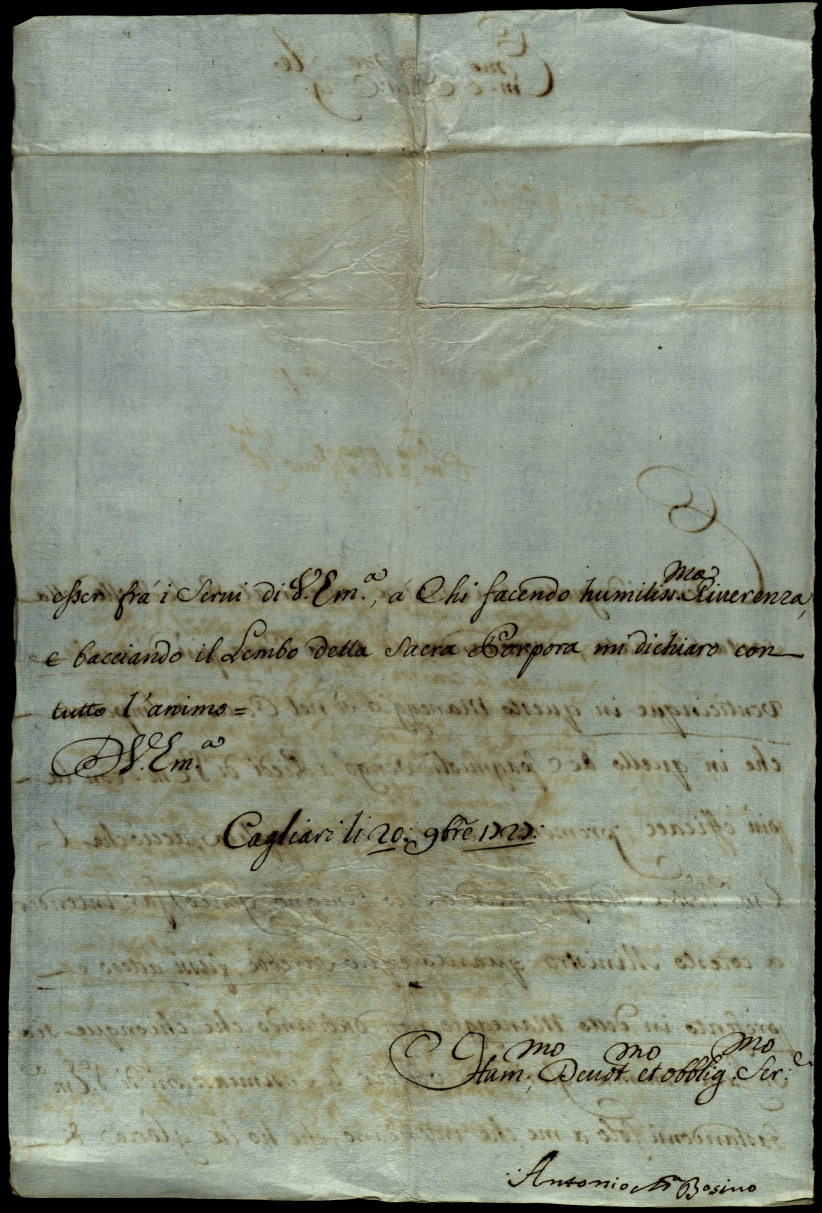 esser frá i Serui di V. Em.ᵃ, á Chi facendo humiliss.ᵐᵃ Riuerenza,
e bacciando il Lembo della Sacra Porpora mi dichiaro con
tutto l'animo=
D V. Em.ᵃ
Cagliari li 20: 9bre 1727:
Hum.ᵐᵒ, Deuot.ᵐᵒ et obblig.ᵐᵒ Ser.ᵉ
Antonio Mᵃ Bosino